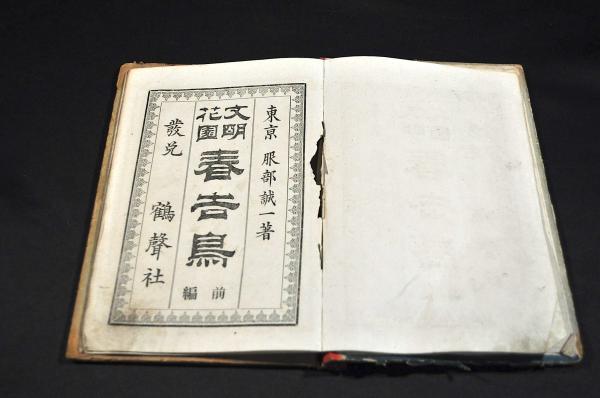 東京 服部誠一著
文明
花園
春告鳥
前編
發兌 鶴聲社